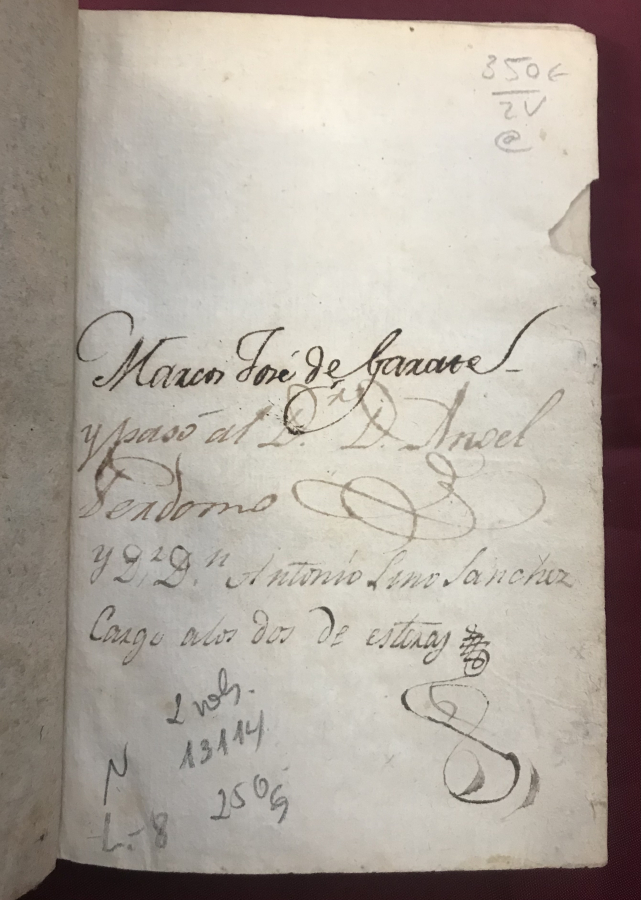 350€
2V
@
Marcos José de Garate
y pasó al D.r D. Angel
Perdomo
y D.r D.n Antonio Lino Sanchez
Cargo a los dos de esteras
2 vols.
13114
250
N
L-8